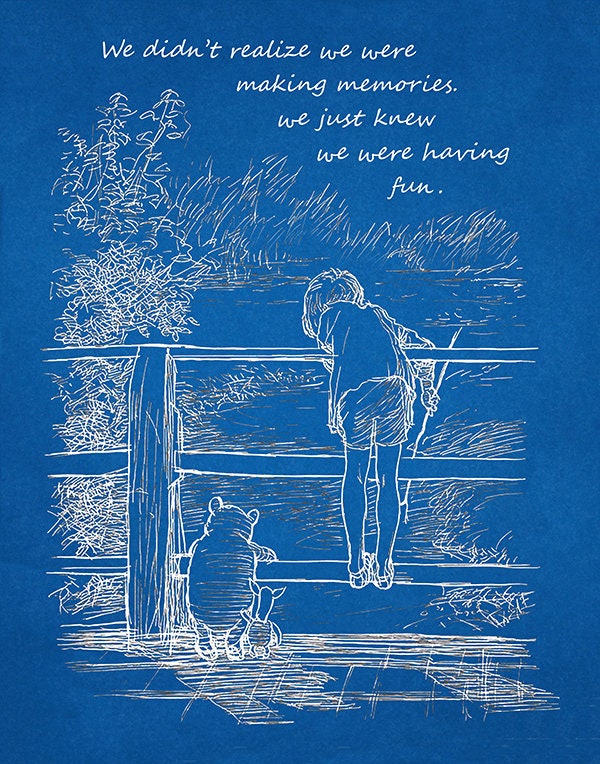 We didn't realize we were
making memories.
we just knew
we were having
fun.